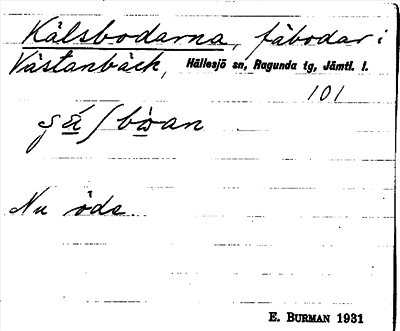 Kälsbodarna, fäbodar i
Västanbäck, Hällesjö sn, Ragunda tg, Jämtl. l.
101
Nu öde.
E. BURMAN 1931